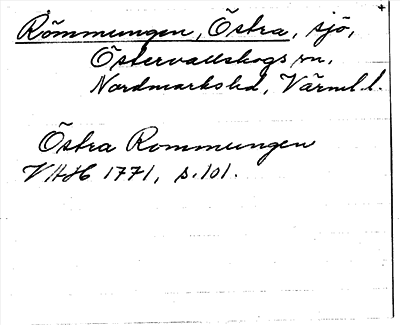 Römmungen, Östra, sjö,
Östervallskogs sn,
Nordmarks hd, Värml. l.
Östra Rommungen
VAH 1771, s. 101.